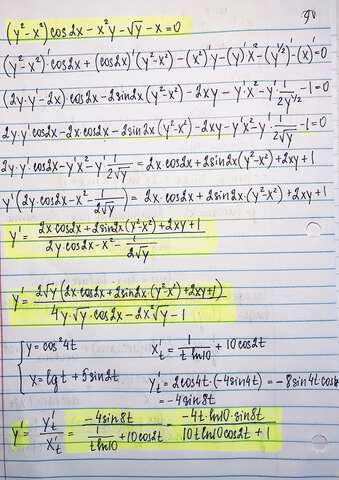 (y²-x²)cos2x - x²y - √y - x = 0
(y²-x²)'·cos2x + (cos2x)'(y²-x²) - (x²)'y - (y)'x² - (y^(1/2))' - (x)' = 0
(2y·y' - 2x)cos2x - 2sin2x(y²-x²) - 2xy - y'x² - y'·1/(2y^(1/2)) - 1 = 0
2y·y'cos2x - 2x·cos2x - 2sin2x(y²-x²) - 2xy - y'x² - y'·1/(2√y) - 1 = 0
2y·y'·cos2x - y'x² - y'·1/(2√y) = 2x·cos2x + 2sin2x(y²-x²) + 2xy + 1
y'(2y·cos2x - x² - 1/(2√y)) = 2x·cos2x + 2sin2x·(y²-x²) + 2xy + 1
y' = (2x·cos2x + 2sin2x(y²-x²) + 2xy + 1)/(2y·cos2x - x² - 1/(2√y))
y' = 2√y(2x·cos2x + 2sin2x·(y²-x²) + 2xy + 1)/(4y·√y·cos2x - 2x²√y - 1)
{ y = cos²4t x't = 1/(t ln10) + 10cos2t
x = lg t + 5sin2t y't = 2cos4t·(-4sin4t) = -8sin4t cos
= -4sin8t
y' = y't/x't = -4sin8t/(1/(t ln10) + 10cos2t) = -4t·ln10·sin8t/(10t ln10 cos2t + 1)